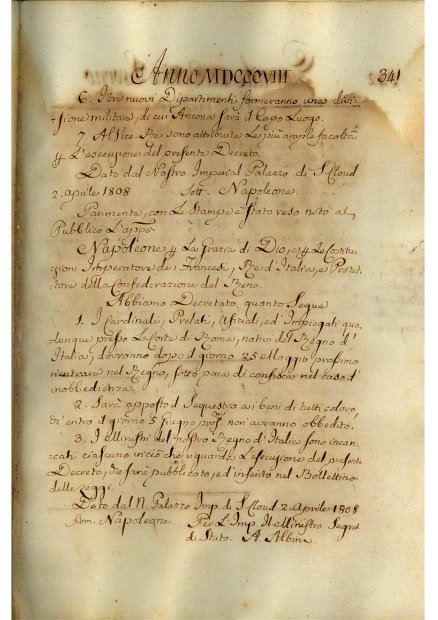 Anno MDCCCVIII 341
6. I tre nuovi Dipartimenti formeranno una divi-
sione militare, di cui Ancona sarà il Capo Luogo.
7. Al Vice-Re sono attribuite le più ample facoltà
p. L'esecuzione del presente Decreto.
Dato dal Nostro Imperial Palazzo di S. Cloud
2. aprile 1808 sott. Napoleone.
Parimente, con Le Stampe è stato reso noto al
Pubblico L'appo
Napoleone p. La Grazia di Dio, e p. Le Costitu-
zioni Imperatore de i Francesi, Re d'Italia, e Protet-
tore della Confederazione del Reno.
Abbiamo Decretato, quanto Segue
1. I Cardinali, Prelati, Ufiziali, ed' Impiegati qua-
lunque presso La Corte di Roma, nativi del Regno d'
Italia, dovranno dopo il giorno 25 Maggio prossimo
rientrare nel Regno, sotto pena di confisca nel caso d'
inobbedienza.
2. Sarà apposto il Sequestro ai beni di tutti coloro,
ch'entro il giorno 5 Giugno pros. non avranno obbedito.
3. I Ministri del nostro Regno d'Italia sono incar-
cati ciascuno in ciò che riguarda L'esecuzione del presente
Decreto, che sarà pubblicato, ed' inserito nel Bollettino
delle Leggi.
Dato dal N. Palazzo Imp. di S. Cloud 2. Aprile 1808
Napoleone. Per L'Imp. Il Ministro Segret.
di Stato. A Aldini